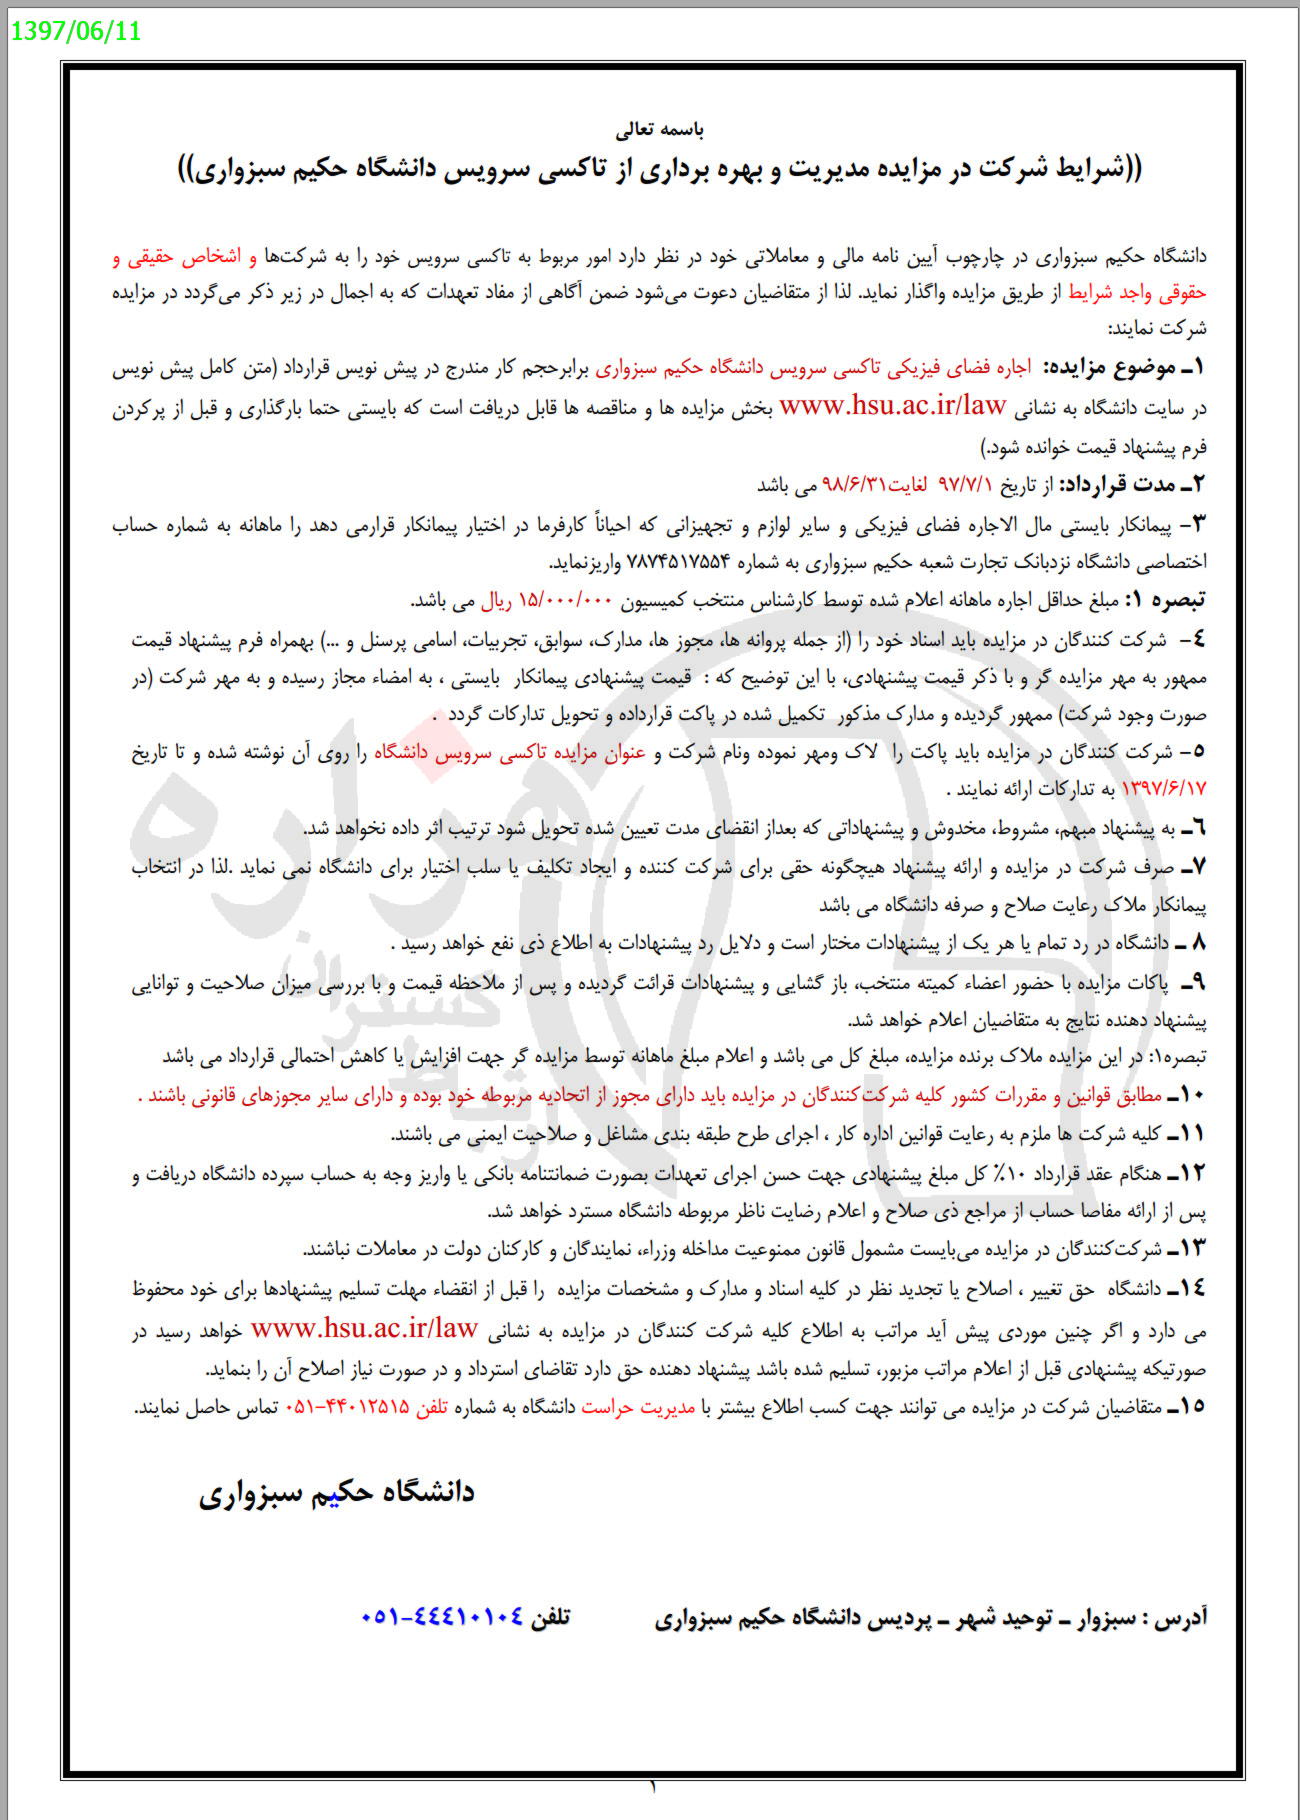 1397/06/11
باسمه تعالی
((شرایط شرکت در مزایده مدیریت و بهره برداری از تاکسی سرویس دانشگاه حکیم سبزواری))
دانشگاه حکیم سبزواری در چارچوب آیین نامه مالی و معاملاتی خود در نظر دارد امور مربوط به تاکسی سرویس خود را به شرکت‌ها و اشخاص حقیقی و
حقوقی واجد شرایط از طریق مزایده واگذار نماید. لذا از متقاضیان دعوت می‌شود ضمن آگاهی از مفاد تعهدات که به اجمال در زیر ذکر می‌گردد در مزایده
شرکت نمایند:
۱ـ موضوع مزایده: اجاره فضای فیزیکی تاکسی سرویس دانشگاه حکیم سبزواری برابرحجم کار مندرج در پیش نویس قرارداد (متن کامل پیش نویس
در سایت دانشگاه به نشانی www.hsu.ac.ir/law بخش مزایده ها و مناقصه ها قابل دریافت است که بایستی حتما بارگذاری و قبل از پرکردن
فرم پیشنهاد قیمت خوانده شود.)
۲ـ مدت قرارداد: از تاریخ ۹۷/۷/۱ لغایت۹۸/۶/۳۱ می باشد
۳- پیمانکار بایستی مال الاجاره فضای فیزیکی و سایر لوازم و تجهیزانی که احیاناً کارفرما در اختیار پیمانکار قرارمی دهد را ماهانه به شماره حساب
اختصاصی دانشگاه نزدبانک تجارت شعبه حکیم سبزواری به شماره ۷۸۷۴۵۱۷۵۵۴ واریزنماید.
تبصره ۱: مبلغ حداقل اجاره ماهانه اعلام شده توسط کارشناس منتخب کمیسیون ۱۵/۰۰۰/۰۰۰ ریال می باشد.
۴- شرکت کنندگان در مزایده باید اسناد خود را (از جمله پروانه ها، مجوز ها، مدارک، سوابق، تجربیات، اسامی پرسنل و ...) بهمراه فرم پیشنهاد قیمت
ممهور به مهر مزایده گر و با ذکر قیمت پیشنهادی، با این توضیح که : قیمت پیشنهادی پیمانکار بایستی ، به امضاء مجاز رسیده و به مهر شرکت (در
صورت وجود شرکت) ممهور گردیده و مدارک مذکور تکمیل شده در پاکت قرارداده و تحویل تدارکات گردد .
۵- شرکت کنندگان در مزایده باید پاکت را لاک ومهر نموده ونام شرکت و عنوان مزایده تاکسی سرویس دانشگاه را روی آن نوشته شده و تا تاریخ
۱۳۹۷/۶/۱۷ به تدارکات ارائه نمایند .
۶ـ به پیشنهاد مبهم، مشروط، مخدوش و پیشنهاداتی که بعداز انقضای مدت تعیین شده تحویل شود ترتیب اثر داده نخواهد شد.
۷ـ صرف شرکت در مزایده و ارائه پیشنهاد هیچگونه حقی برای شرکت کننده و ایجاد تکلیف یا سلب اختیار برای دانشگاه نمی نماید .لذا در انتخاب
پیمانکار ملاک رعایت صلاح و صرفه دانشگاه می باشد
۸ ـ دانشگاه در رد تمام یا هر یک از پیشنهادات مختار است و دلایل رد پیشنهادات به اطلاع ذی نفع خواهد رسید .
۹ـ پاکات مزایده با حضور اعضاء کمیته منتخب، باز گشایی و پیشنهادات قرائت گردیده و پس از ملاحظه قیمت و با بررسی میزان صلاحیت و توانایی
پیشنهاد دهنده نتایج به متقاضیان اعلام خواهد شد.
تبصره۱: در این مزایده ملاک برنده مزایده، مبلغ کل می باشد و اعلام مبلغ ماهانه توسط مزایده گر جهت افزایش یا کاهش احتمالی قرارداد می باشد
۱۰ـ مطابق قوانین و مقررات کشور کلیه شرکت‌کنندگان در مزایده باید دارای مجوز از اتحادیه مربوطه خود بوده و دارای سایر مجوزهای قانونی باشند .
۱۱ـ کلیه شرکت ها ملزم به رعایت قوانین اداره کار ، اجرای طرح طبقه بندی مشاغل و صلاحیت ایمنی می باشند.
۱۲ـ هنگام عقد قرارداد ۱۰٪ کل مبلغ پیشنهادی جهت حسن اجرای تعهدات بصورت ضمانتنامه بانکی یا واریز وجه به حساب سپرده دانشگاه دریافت و
پس از ارائه مفاصا حساب از مراجع ذی صلاح و اعلام رضایت ناظر مربوطه دانشگاه مسترد خواهد شد.
۱۳ـ شرکت‌کنندگان در مزایده می‌بایست مشمول قانون ممنوعیت مداخله وزراء، نمایندگان و کارکنان دولت در معاملات نباشند.
۱۴ـ دانشگاه حق تغییر ، اصلاح یا تجدید نظر در کلیه اسناد و مدارک و مشخصات مزایده را قبل از انقضاء مهلت تسلیم پیشنهادها برای خود محفوظ
می دارد و اگر چنین موردی پیش آید مراتب به اطلاع کلیه شرکت کنندگان در مزایده به نشانی www.hsu.ac.ir/law خواهد رسید در
صورتیکه پیشنهادی قبل از اعلام مراتب مزبور، تسلیم شده باشد پیشنهاد دهنده حق دارد تقاضای استرداد و در صورت نیاز اصلاح آن را بنماید.
۱۵ـ متقاضیان شرکت در مزایده می توانند جهت کسب اطلاع بیشتر با مدیریت حراست دانشگاه به شماره تلفن ۴۴۰۱۲۵۱۵-۰۵۱ تماس حاصل نمایند.
دانشگاه حکیم سبزواری
آدرس : سبزوار ـ توحید شهر ـ پردیس دانشگاه حکیم سبزواری تلفن ۴۴۴۱۰۱۰۴-۰۵۱
۱
هزاره
گستران
ارتباط